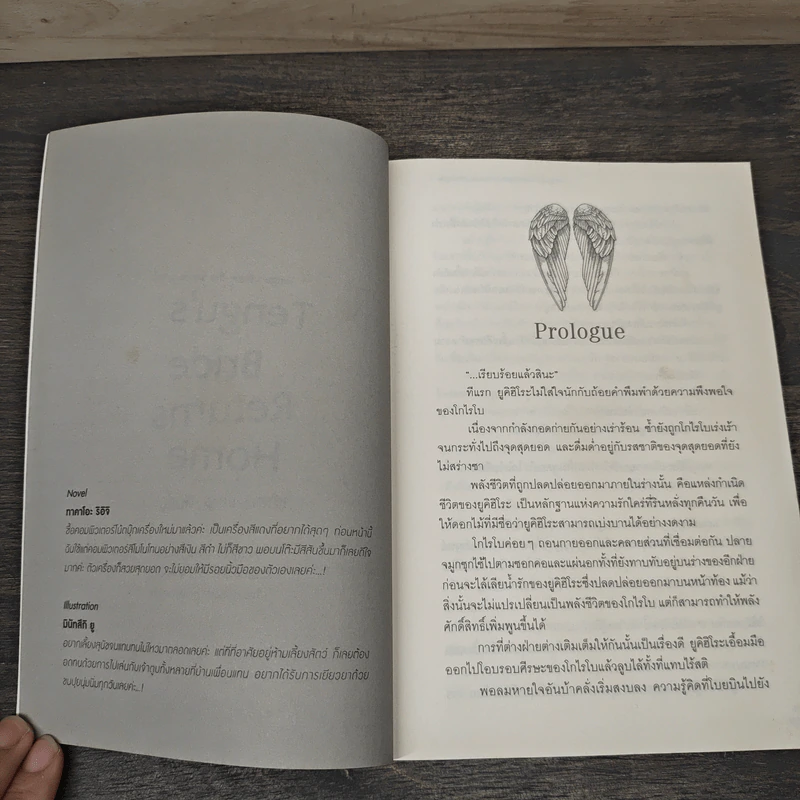 Tengu's
Bride
Returns
Home
Novel
ทาคาโอะ ริอิจิ
ซื้อคอมพิวเตอร์โน้ตบุ๊กเครื่องใหม่มาแล้วค่ะ เป็นเครื่องสีแดงที่อยากได้สุดๆ ก่อนหน้านี้
ฉันใช้แต่คอมพิวเตอร์สีโมโนโทนอย่างสีเงิน สีดำ ไม่ก็สีขาว พอบนโต๊ะมีสีสันขึ้นมาก็เลยดีใจ
มากค่ะ ตัวเครื่องก็สวยสุดยอด จะไม่ยอมให้มีรอยนิ้วมือของตัวเองเลยค่ะ...!
Illustration
มินัทสึกิ ยู
อยากเลี้ยงสุนัขจนแทบทนไม่ไหวมาตลอดเลยค่ะ แต่ที่ที่อาศัยอยู่ห้ามเลี้ยงสัตว์ ก็เลยต้อง
อดทนด้วยการไปเล่นกับเจ้าตูบทั้งหลายที่บ้านเพื่อนแทน อยากได้รับการเยียวยาด้วย
ขนปุยนุ่มนิ่มทุกวันเลยค่ะ...!
Prologue
“...เรียบร้อยแล้วสินะ”
ทีแรก ยูคิฮิโระไม่ใส่ใจนักกับถ้อยคำพึมพำด้วยความพึงพอใจ
ของโกไรโบ
เนื่องจากกำลังกอดก่ายกันอย่างเร่าร้อน ซ้ำยังถูกโกไรโบเร่งเร้า
จนกระทั่งไปถึงจุดสุดยอด และดื่มด่ำอยู่กับรสชาติของจุดสุดยอดที่ยัง
ไม่สร่างซา
พลังชีวิตที่ถูกปลดปล่อยออกมาภายในร่างนั้น คือแหล่งกำเนิด
ชีวิตของยูคิฮิโระ เป็นหลักฐานแห่งความรักใคร่ที่รินหลั่งทุกคืนวัน เพื่อ
ให้ดอกไม้ที่มีชื่อว่ายูคิฮิโระสามารถเบ่งบานได้อย่างงดงาม
โกไรโบค่อยๆ ถอนกายออกและคลายส่วนที่เชื่อมต่อกัน ปลาย
จมูกซุกไซ้ไปตามซอกคอและแผ่นอกทั้งที่ยังทาบทับอยู่บนร่างของอีกฝ่าย
ก่อนจะไล้เลียน้ำรักของยูคิฮิโระซึ่งปลดปล่อยออกมาบนหน้าท้อง แม้ว่า
สิ่งนั้นจะไม่แปรเปลี่ยนเป็นพลังชีวิตของโกไรโบ แต่ก็สามารถทำให้พลัง
ศักดิ์สิทธิ์เพิ่มพูนขึ้นได้
การที่ต่างฝ่ายต่างเติมเต็มให้กันนั้นเป็นเรื่องดี ยูคิฮิโระเอื้อมมือ
ออกไปโอบรอบศีรษะของโกไรโบแล้วลูบไล้ทั้งที่แทบไร้สติ
พอลมหายใจอันบ้าคลั่งเริ่มสงบลง ความรู้คิดที่โบยบินไปยัง